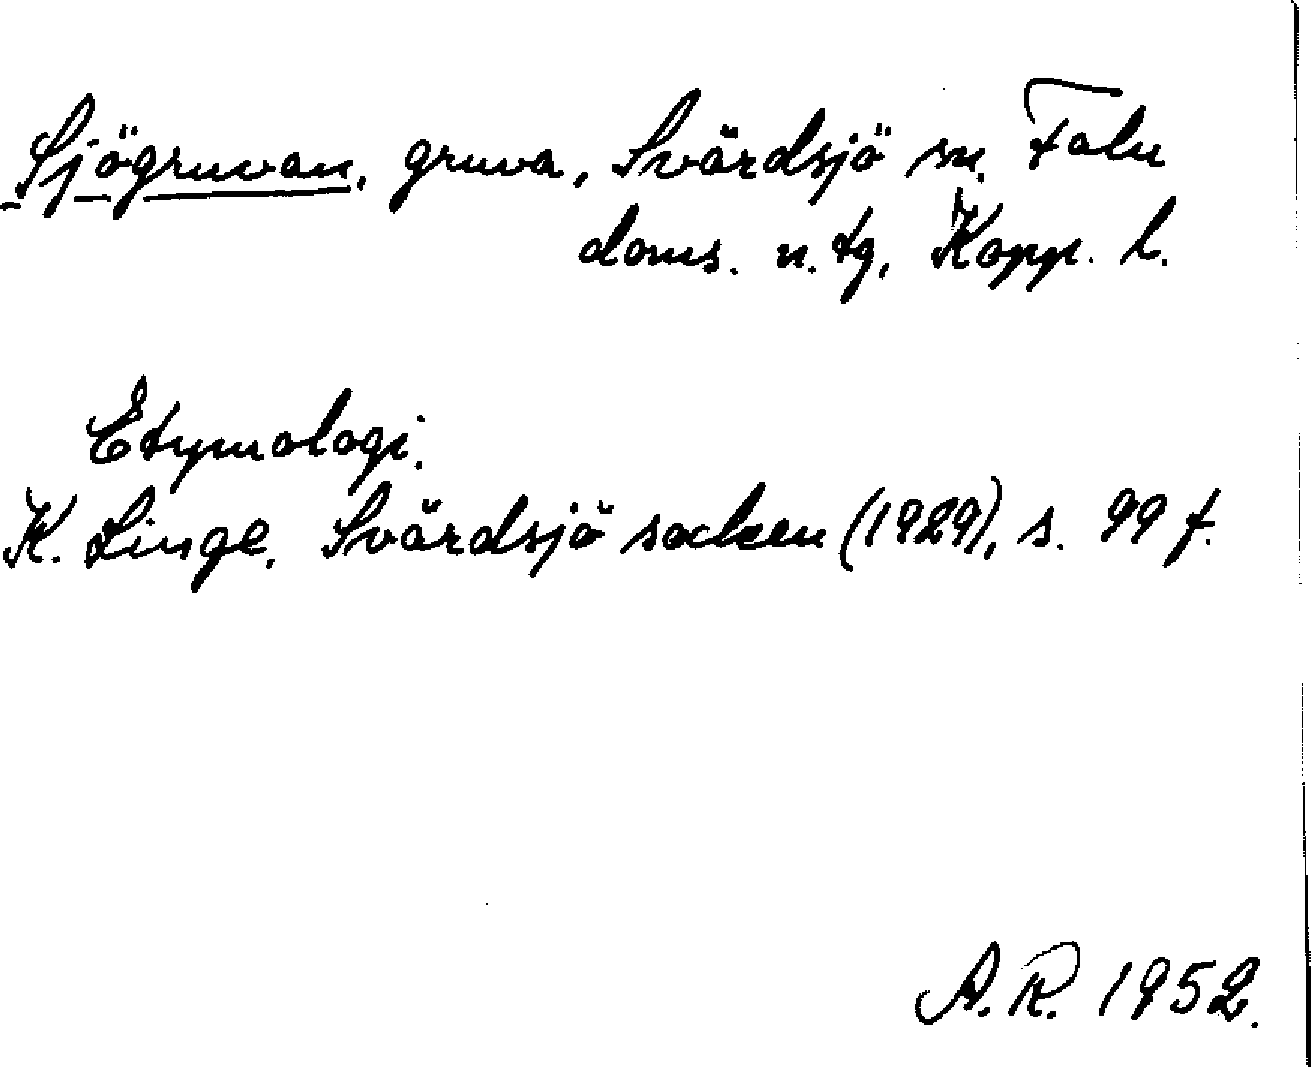 Sjögruvan, gruva, Svärdsjö sn. Falu
doms. n. tg, Kopp. l.
Etymologi.
K. Linge, Svärdsjö socken (1929), s. 99 f.
A. R. 1952.